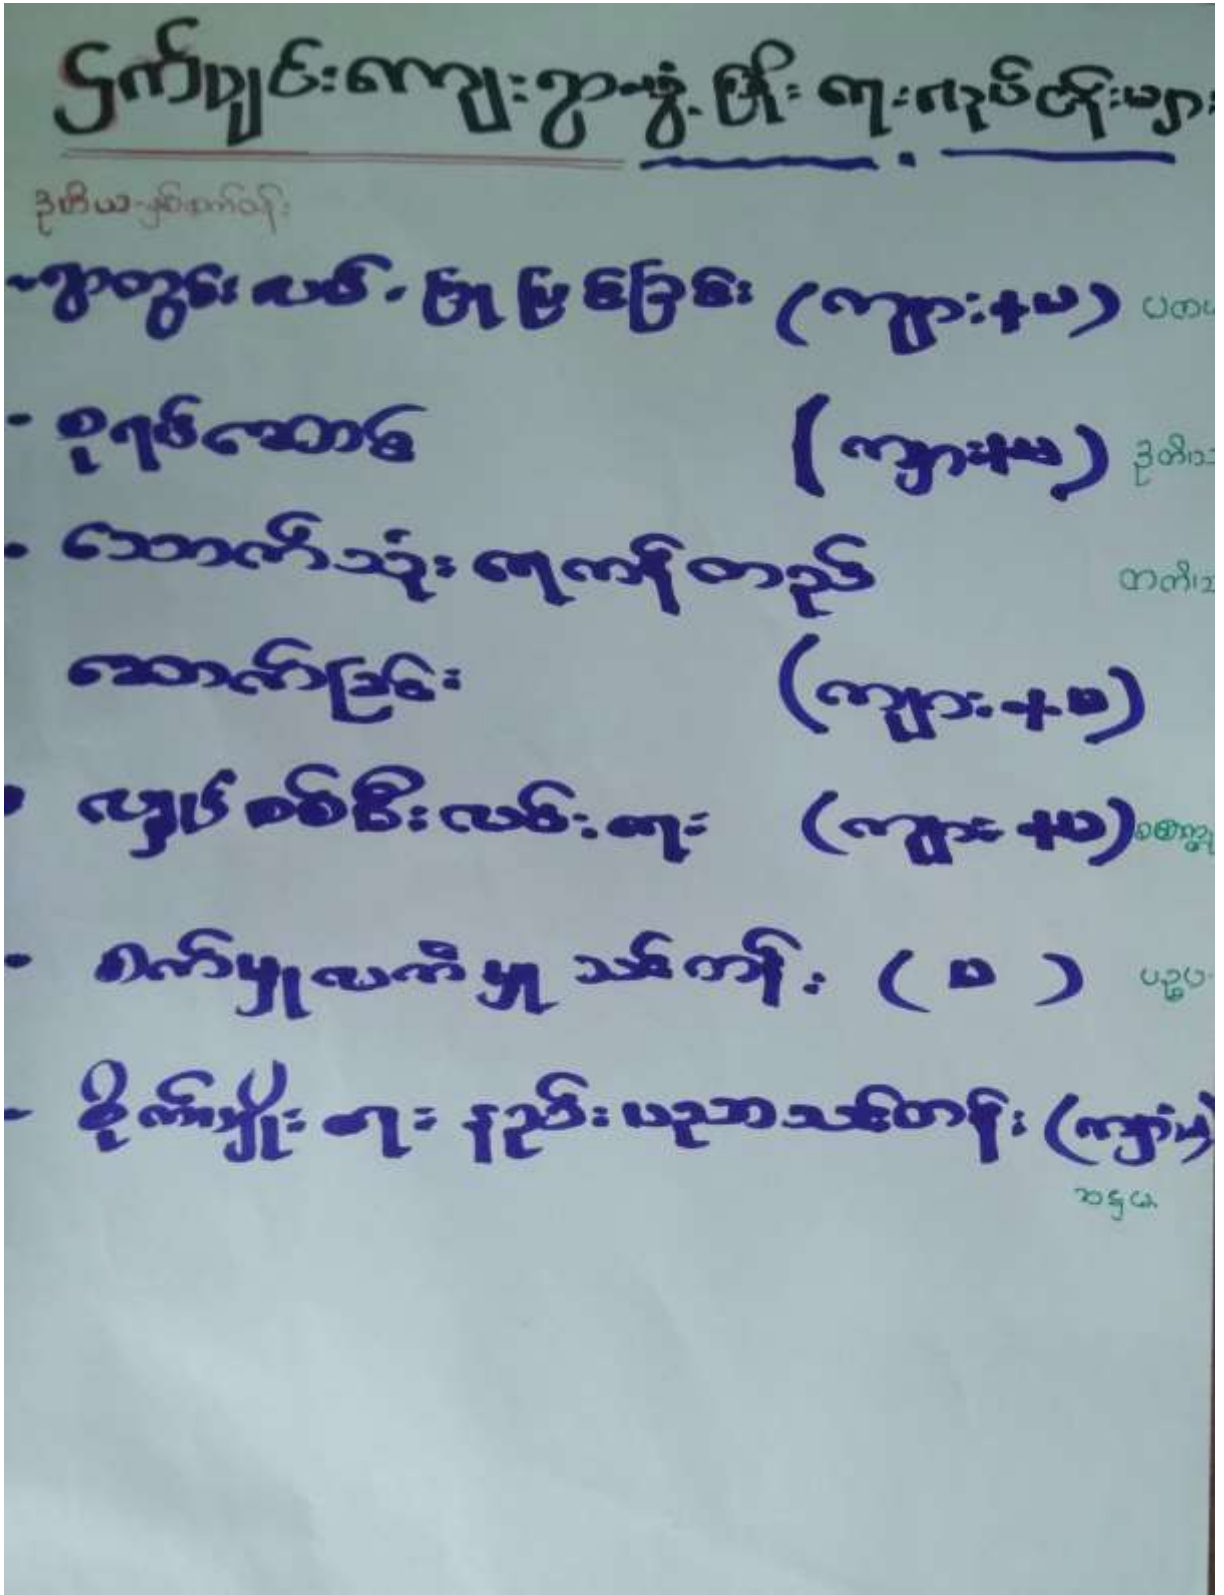 ဌက်ပျင်းကျေးရွာ ဖွံ့ဖြိုးရေးလုပ်ငန်းများ
ဒုတိယ-နှစ်ပတ်လမ်း
-ရွာတွင်းလမ်း ပြုပြင်ခြင်း (ကျား+မ) ပထမ
- စုရပ်ဆောင် (ကျား+မ) ဒုတိယ
- သောက်သုံးရေကန်တည် တတိယ
ဆောက်ခြင်း (ကျား+မ)
- လျှပ်စစ်မီးလင်းရေး (ကျား+မ) စတုတ္ထ
- စက်မှုလက်မှု သင်တန်း ( မ ) ပဉ္စမ
- စိုက်ပျိုးရေး နည်းပညာသင်တန်း (ကျား၊မ)
ဆဋ္ဌမ